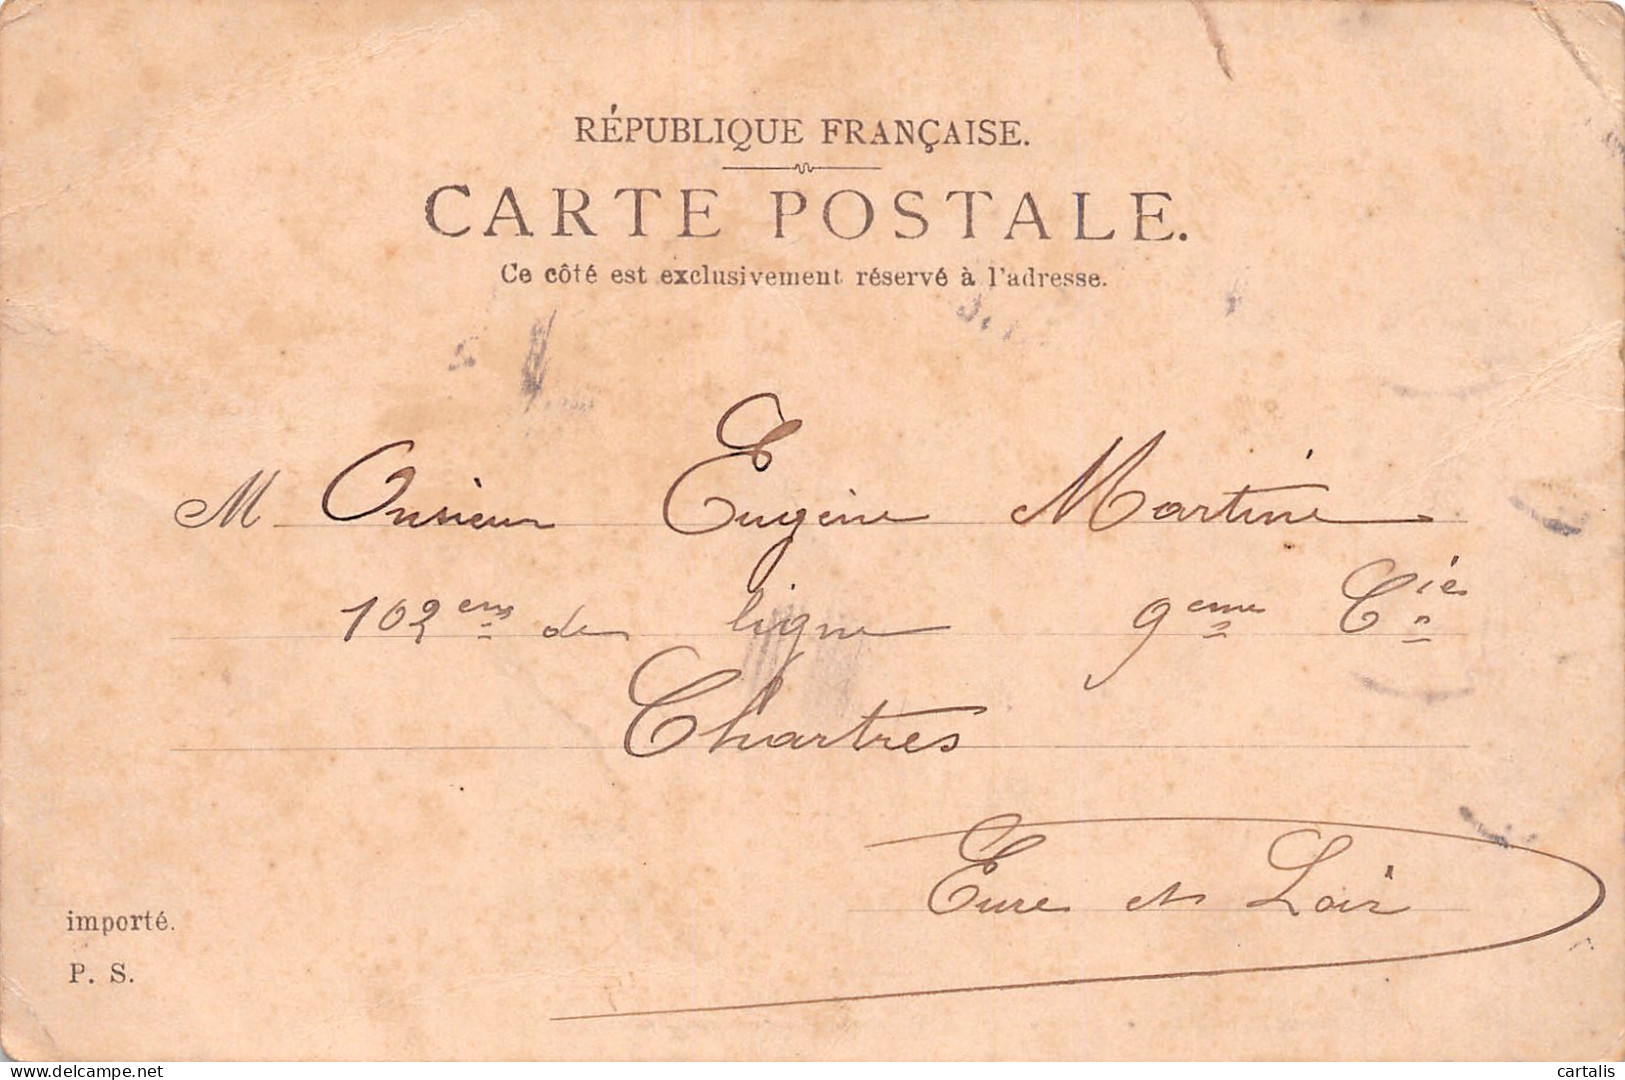 RÉPUBLIQUE FRANÇAISE.
CARTE POSTALE.
Ce côté est exclusivement réservé à l'adresse.
Monsieur Eugène Martin
102eme de ligne 9eme Cie
Chartres
Eure et Loir
importé.
P. S.
delcampe.net
cartalis